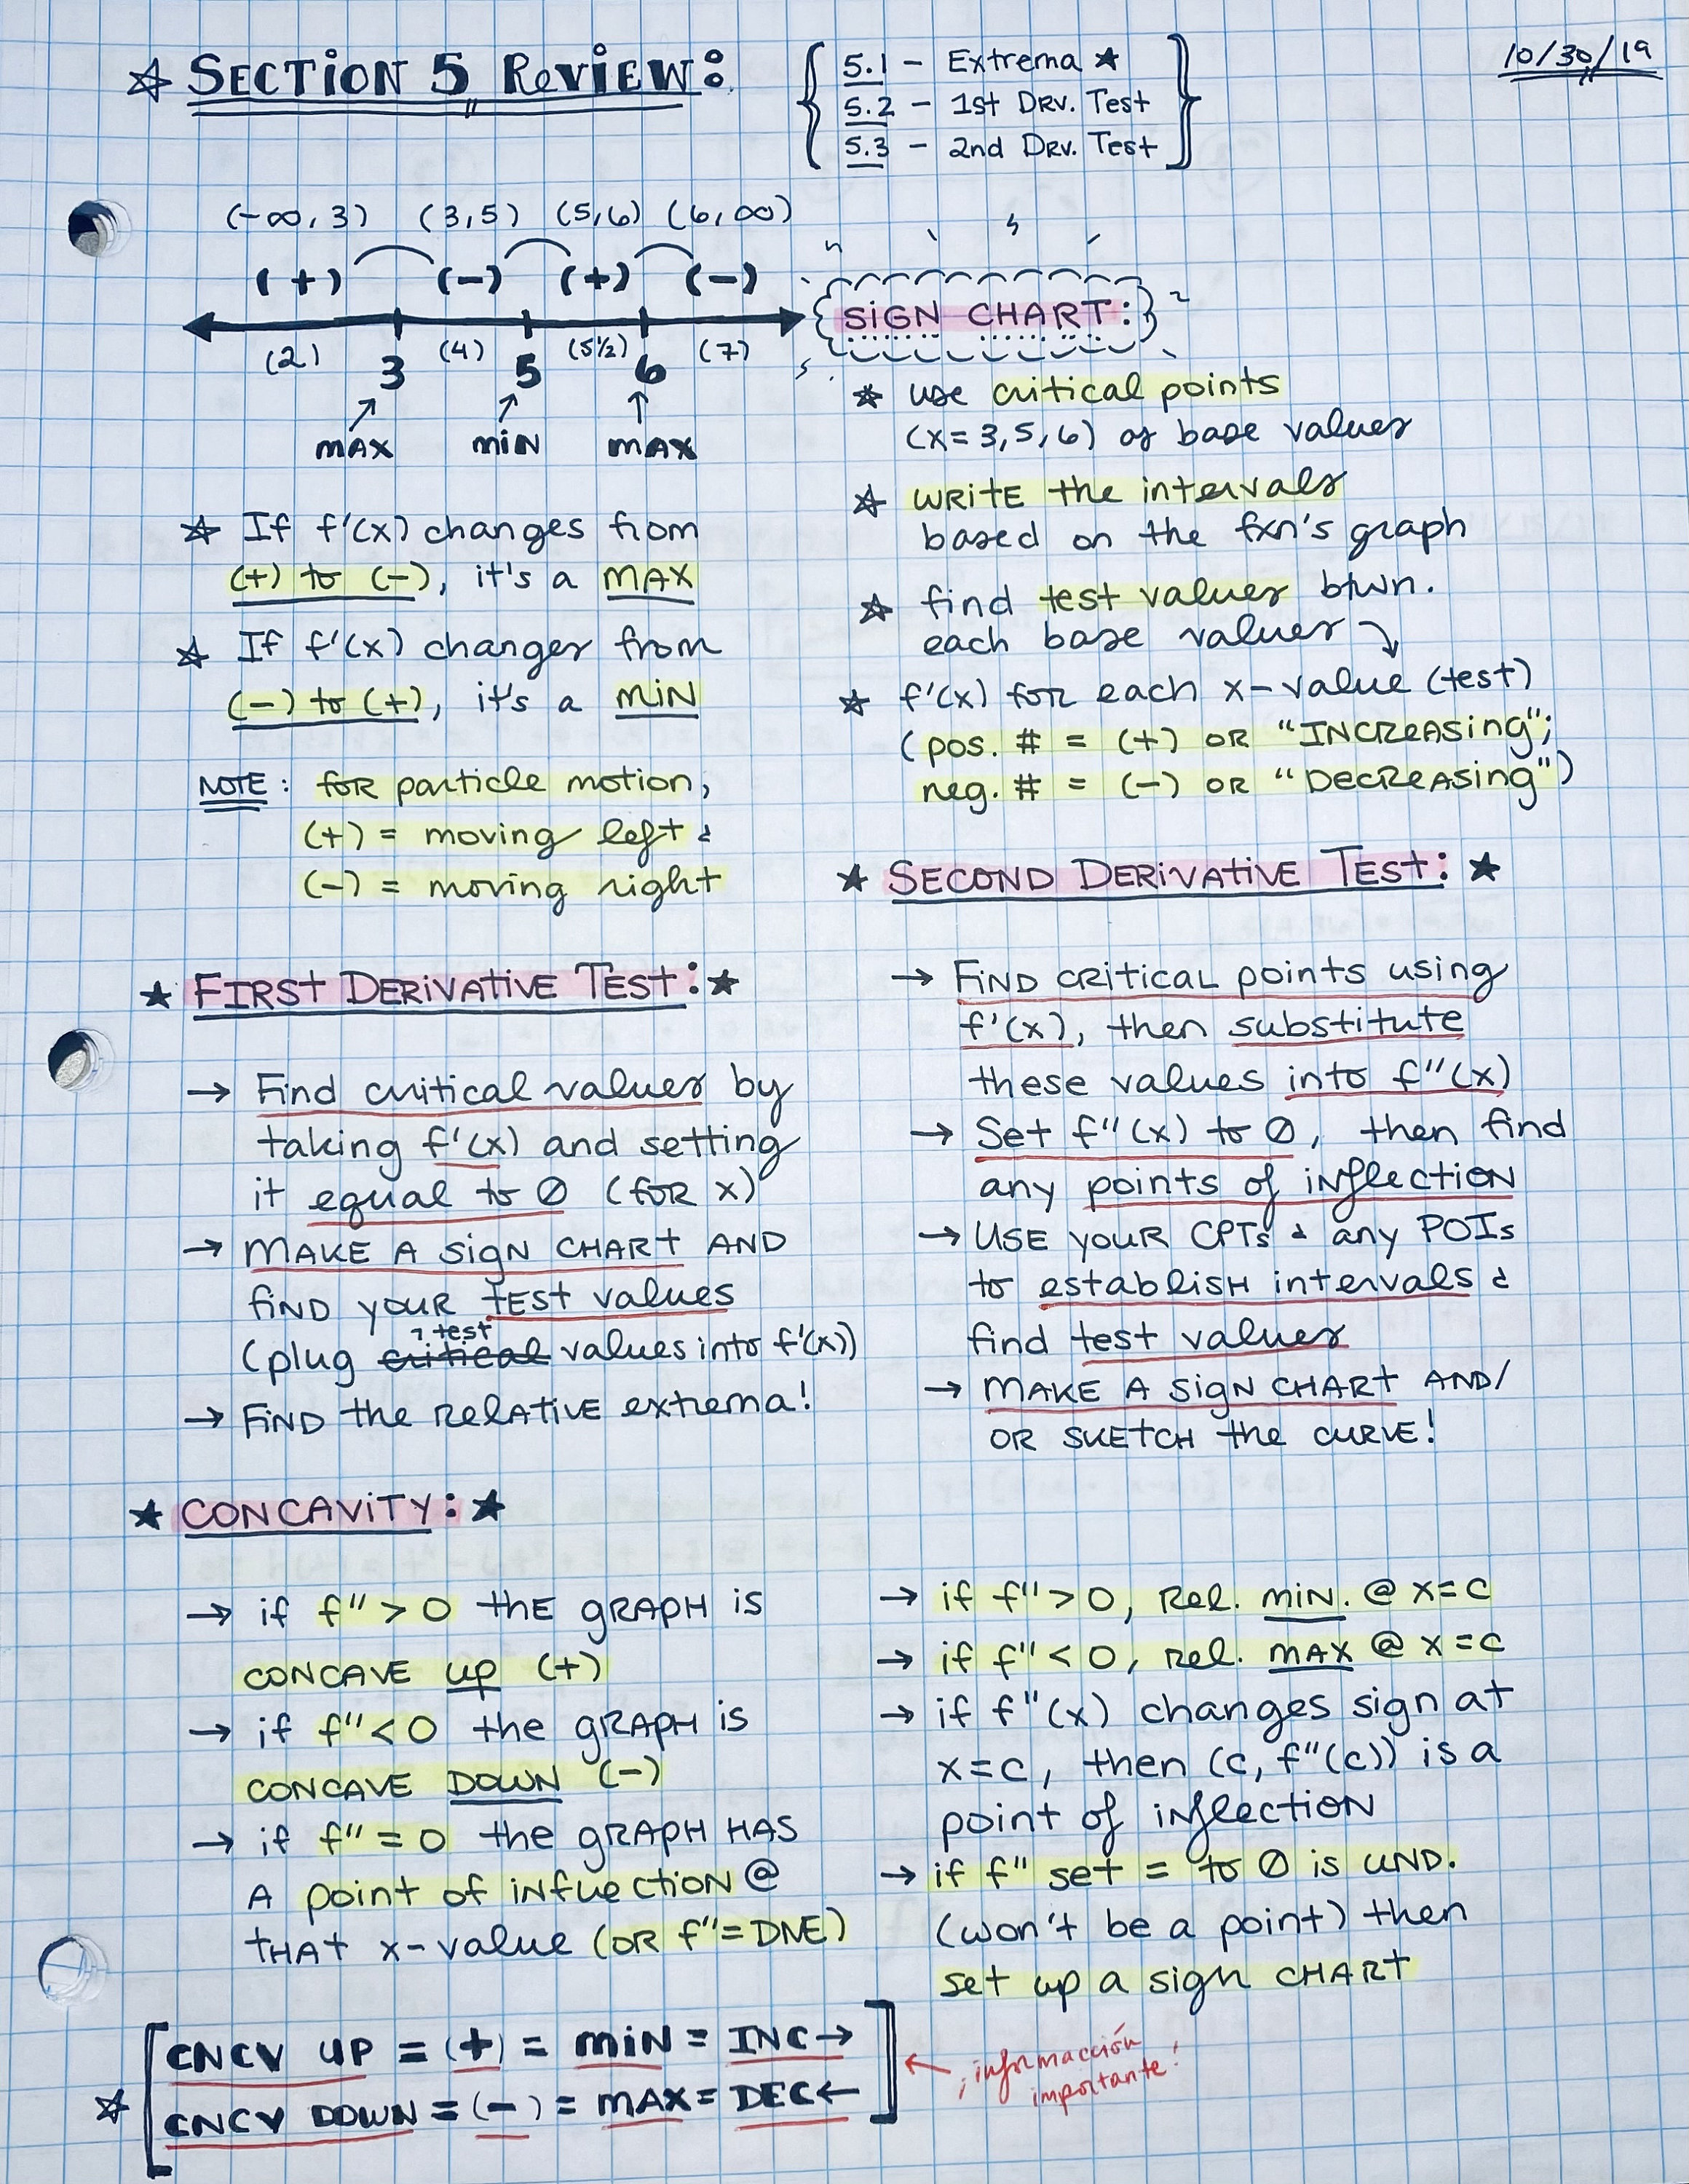 ☆ SECTION 5 REVIEW:
5.1 - Extrema ★
5.2 - 1st DRV. Test
5.3 - 2nd DRV. Test
10/30/19
(-∞, 3) (3,5) (5,6) (6,∞)
(+) (-) (+) (-)
(2) 3 (4) 5 (5½) 6 (7)
MAX MIN MAX
☆ If f'(x) changes from
(+) to (-), it's a MAX
☆ If f'(x) changes from
(-) to (+), it's a MIN
NOTE: for particle motion,
(+) = moving left &
(-) = moving right
SIGN CHART:
☆ use critical points
(x=3,5,6) as base values
☆ WRITE the intervals
based on the fxn's graph
☆ find test values btwn.
each base values
☆ f'(x) for each x-value (test)
(pos. # = (+) OR "INCREASING";
neg. # = (-) OR "DECREASING")
★ FIRST DERIVATIVE TEST: ★
→ Find critical values by
taking f'(x) and setting
it equal to 0 (for x)
→ MAKE A SIGN CHART AND
FIND YOUR TEST values
test
(plug critical values into f'(x))
→ FIND the RELATIVE extrema!
★ SECOND DERIVATIVE TEST: ★
→ FIND CRITICAL points using
f'(x), then substitute
these values into f''(x)
→ Set f''(x) to 0, then find
any points of inflection
→ USE YOUR CPTs & any POIs
to establish intervals &
find test values
→ MAKE A SIGN CHART AND/
OR SKETCH the CURVE!
★ CONCAVITY: ★
→ if f'' > 0 the GRAPH is
CONCAVE UP (+)
→ if f'' < 0 the GRAPH is
CONCAVE DOWN (-)
→ if f'' = 0 the GRAPH HAS
A point of inflection @
THAT x-value (OR f''=DNE)
→ if f'' > 0, Rel. MIN. @ x=c
→ if f'' < 0, rel. MAX @ x=c
→ if f''(x) changes sign at
x=c, then (c, f''(c)) is a
point of inflection
→ if f'' set = to 0 is UND.
(won't be a point) then
set up a sign CHART
☆ CNCV UP = (+) = MIN = INC→
CNCV DOWN = (-) = MAX = DEC←
← ¡informacción
importante!